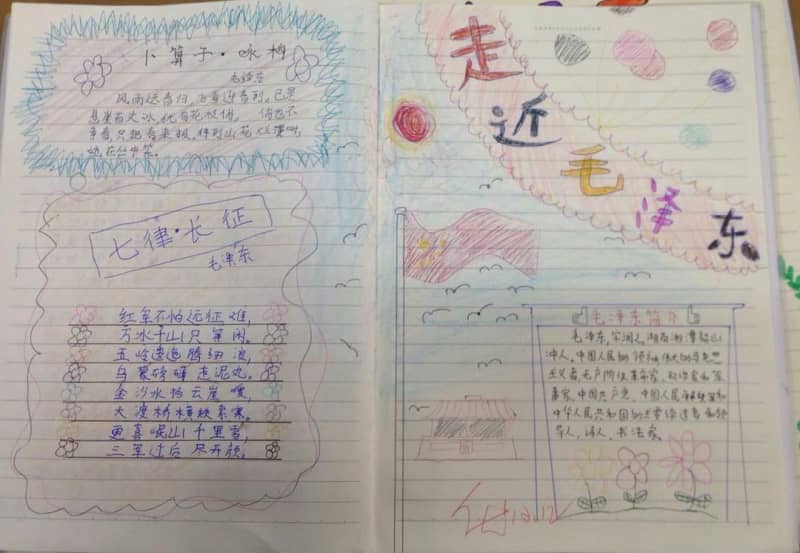 卜算子·咏梅
毛泽东
风雨送春归,飞雪迎春到,已是
悬崖百丈冰,犹有花枝俏,俏也不
争春,只把春来报,待到山花烂漫时,
她在丛中笑。
七律·长征
毛泽东
红军不怕远征难,
万水千山只等闲。
五岭逶迤腾细浪,
乌蒙磅礴走泥丸。
金沙水拍云崖暖,
大渡桥横铁索寒。
更喜岷山千里雪,
三军过后尽开颜。
走近毛泽东
毛泽东简介
毛泽东,字润之,湖南湘潭韶山
冲人。中国人民的领袖,伟大的马克思
主义者,无产阶级革命家、
家,中国共产党、中国人民解放军和
中华人民共和国的主要缔造者和领
导人,诗人,书法家。
12.12